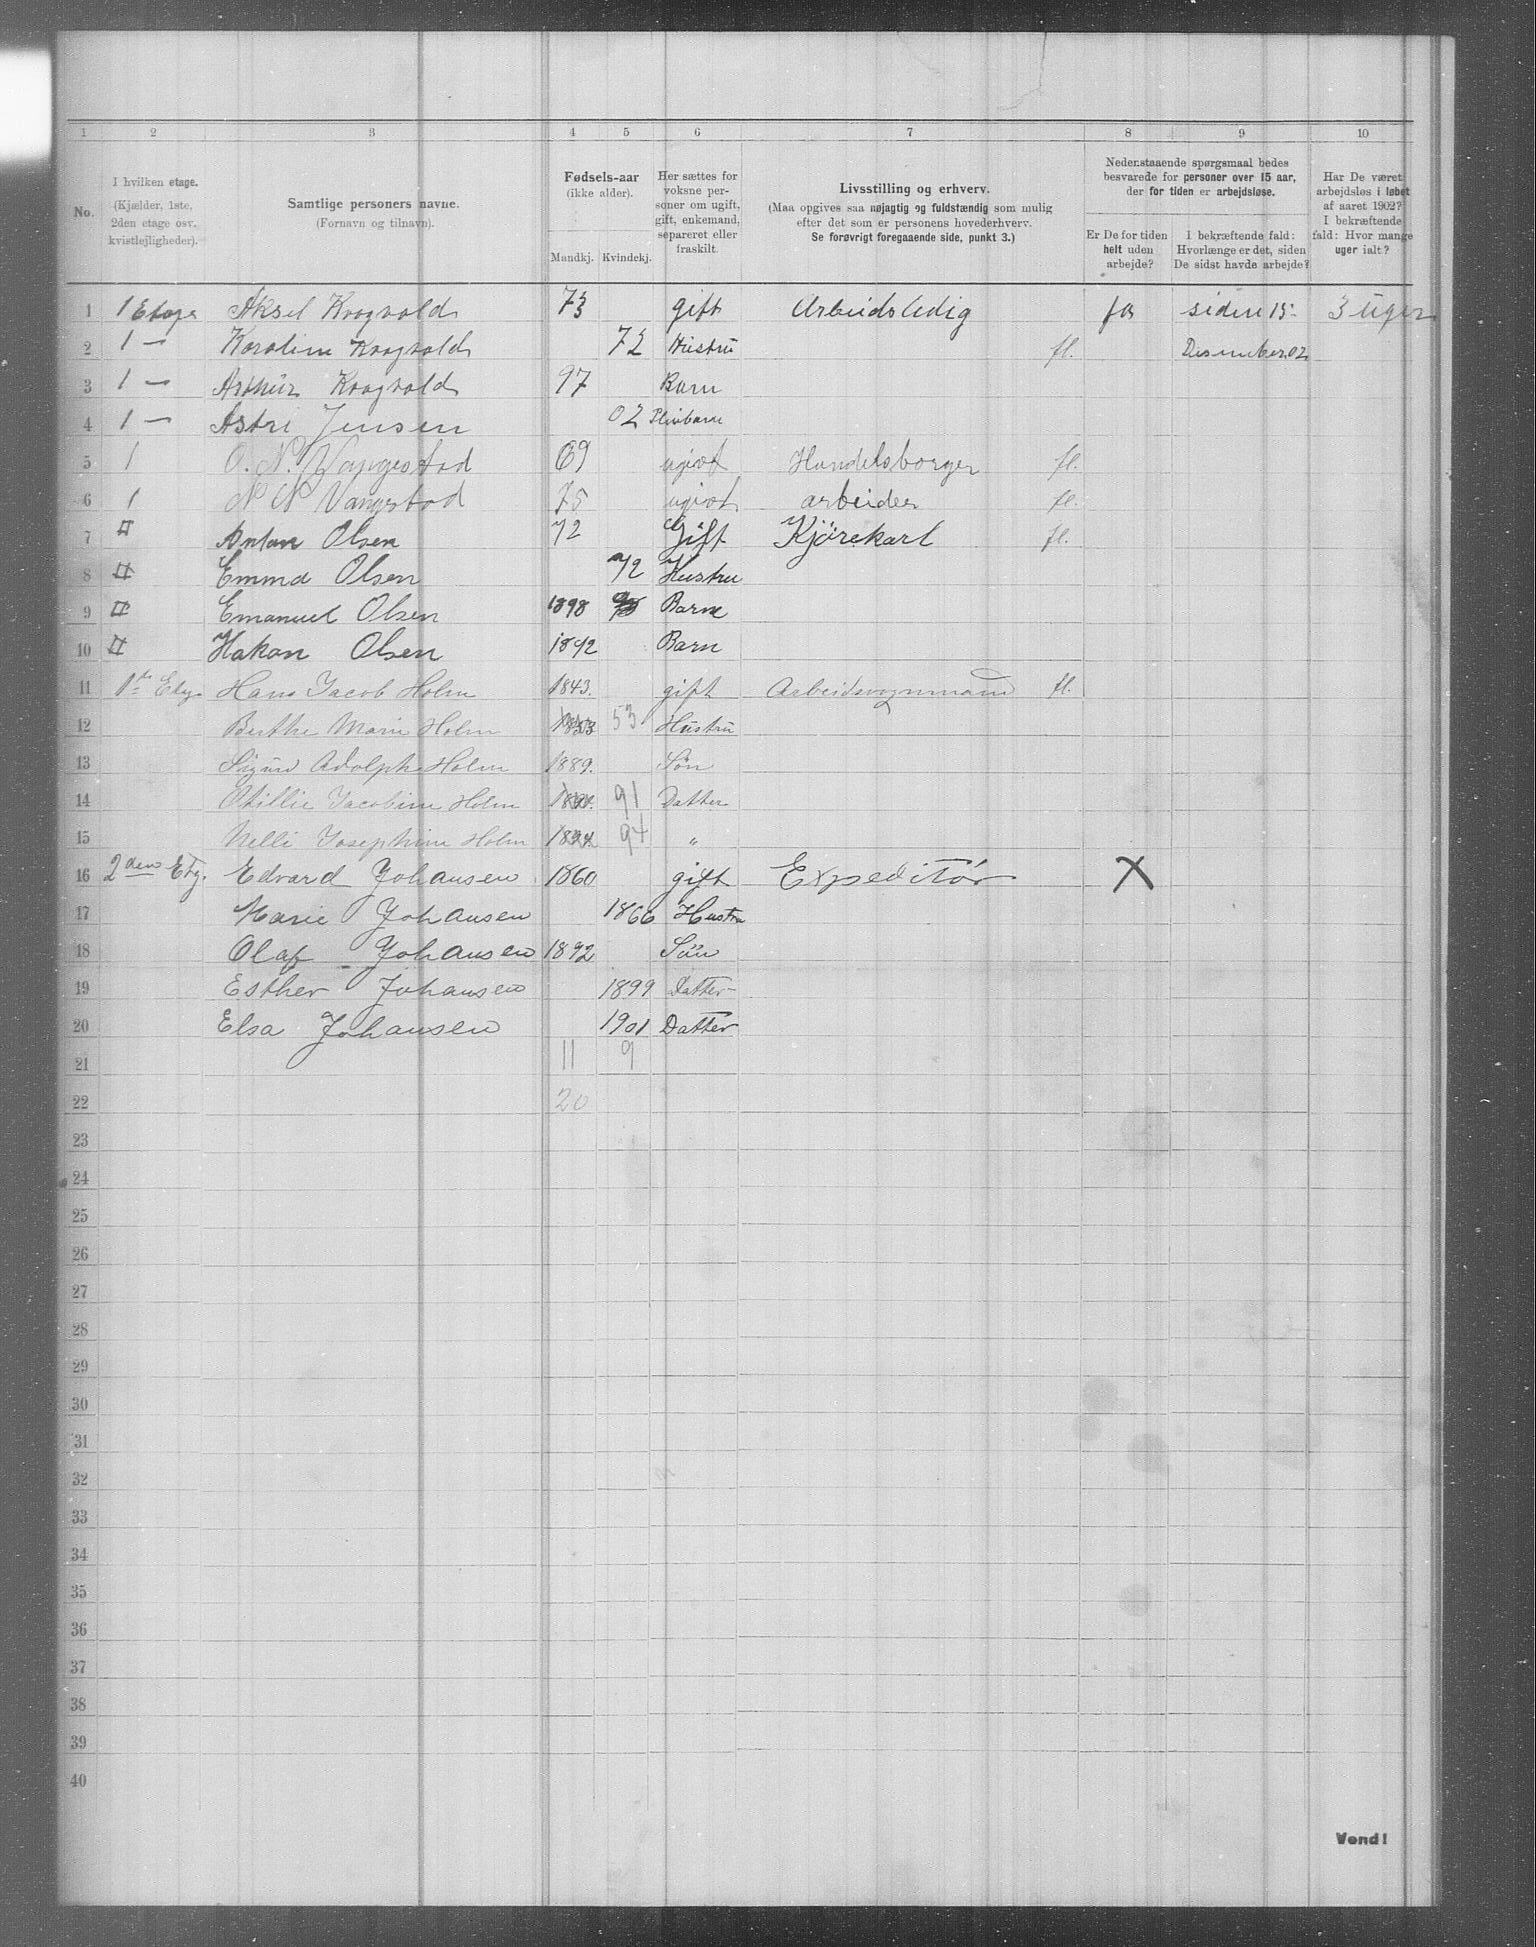 1 2 3 4 5 6 7 8 9 10
No.
I hvilken etage.
(Kjælder, 1ste,
2den etage osv.
kvistlejligheder).
Samtlige personers navne.
(Fornavn og tilnavn).
Fødsels-aar
(ikke alder).
Mandkj. Kvindekj.
Her sættes for
voksne per-
soner om ugift,
gift, enkemand,
separeret eller
fraskilt.
Livsstilling og erhverv.
(Maa opgives saa nøjagtig og fuldstændig som mulig
efter det som er personens hovederhverv.
Se forøvrigt foregaaende side, punkt 3.)
Nedenstaaende spørgsmaal bedes
besvarede for personer over 15 aar,
der for tiden er arbejdsløse.
Er De for tiden
helt uden
arbejde?
I bekræftende fald:
Hvorlænge er det, siden
De sidst havde arbejde?
Har De været
arbejdsløs i løbet
af aaret 1902?
I bekræftende
fald: Hvor mange
uger ialt?
1 1 Etage Aksel Kragvold 73 gift Arbeidsledig ja siden 15- 3 uger
2 1 — Karoline Kragvold 72 Hustru fl. Desember 02
3 1 — Arthur Kragvold 97 Barn
4 1 — Astri Jensen 02 Pleiebarn
5 1 O. N. Vangestad 69 ugivt Handelsborger fl.
6 1 N N Vangstad 75 ugivt arbeider fl.
7 Anton Olsen 72 Gift Kjörekarl fl.
8 Emma Olsen 72 Hustru
9 Emanuel Olsen 1898 Barn
10 Hakon Olsen 1892 Barn
11 1ste Etg. Hans Jacob Holm 1843. gift Arbeidsvognmand fl.
12 Berthe Marie Holm 1853 53 Hustru
13 Sigurd Adolph Holm 1889. Søn
14 Otillie Jacobine Holm 1891. 91 Datter
15 Nelli Josephine Holm 1894. 94 "
16 2den Etg. Edvard Johansen 1860 gift Expeditør X
17 Marie Johansen 1866 Hustru
18 Olaf Johansen 1892 Søn
19 Esther Johansen 1899 Datter
20 Elsa Johansen 1901 Datter
21 11 9
22 20
23
24
25
26
27
28
29
30
31
32
33
34
35
36
37
38
39
40
Vend!